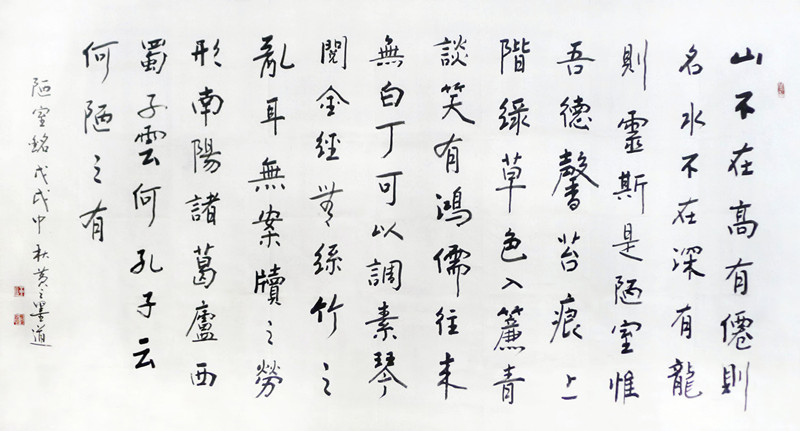 山不在高有僊則
名水不在深有龍
則靈斯是陋室惟
吾德馨苔痕上
階綠草色入簾青
談笑有鴻儒往来
無白丁可以調素琴
閱金經無絲竹之
亂耳無案牘之勞
形南陽諸葛廬西
蜀子雲何孔子云
何陋之有
陋室銘戊戌中秋黄之墨道